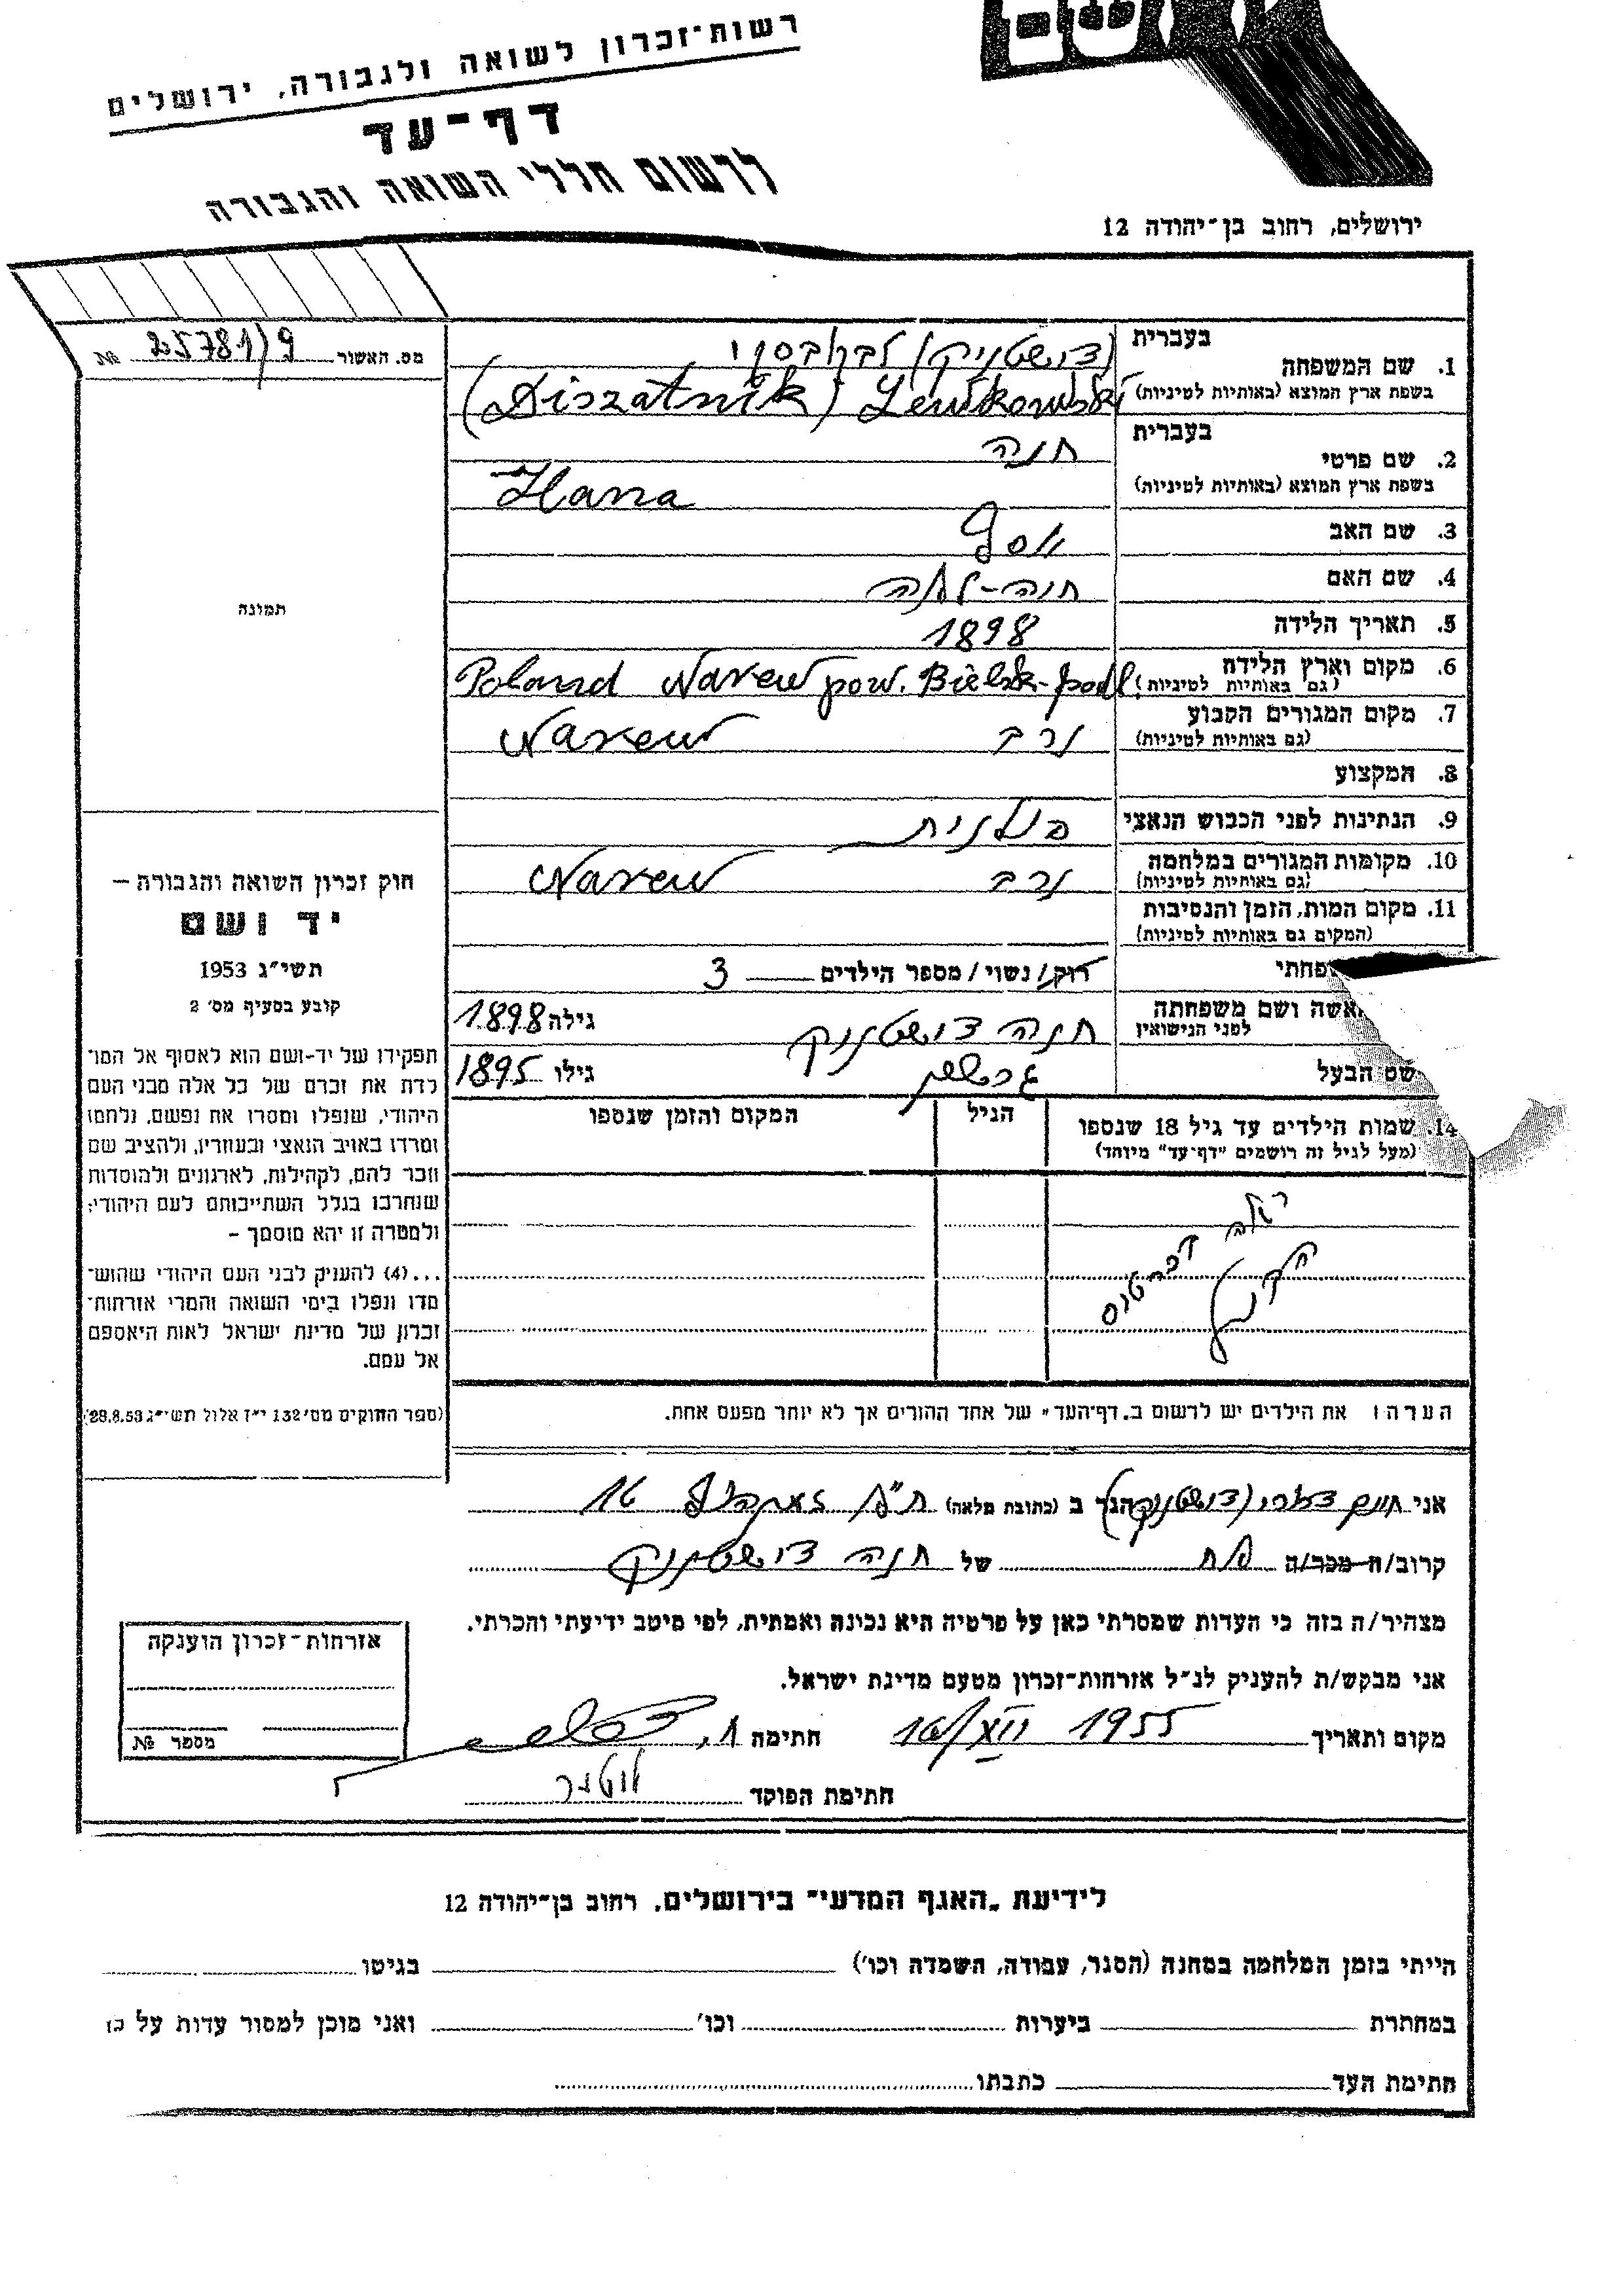 רשות־זכרון לשואה ולגבורה, ירושלים
דף־עד
לרשום חללי השואה והגבורה
ירושלים, רחוב בן־יהודה 12
מס. האשור 25781/9 №
1. שם המשפחה
בעברית (דישטניק) לבקובסקי
בשפת ארץ המוצא (באותיות לטיניות) (Diszatnik) Lewkowski
2. שם פרטי
בעברית חנה
בשפת ארץ המוצא (באותיות לטיניות) Hana
3. שם האב יוסף
4. שם האם חנה-לאה
5. תאריך הלידה 1898
6. מקום וארץ הלידה
(גם באותיות לטיניות) Poland Narew pow. Bielsk-podl.
7. מקום המגורים הקבוע
(גם באותיות לטיניות) נרב Narew
8. המקצוע
9. הנתינות לפני הכבוש הנאצי פולנית
10. מקומות המגורים במלחמה
(גם באותיות לטיניות) נרב Narew
11. מקום המות, הזמן והנסיבות
(המקום גם באותיות לטיניות)
רווק/ נשוי / מספר הילדים 3
האשה ושם משפחתה
לפני הנישואין חנה דישטניק גילה 1898
שם הבעל גרשון גילו 1895
14. שמות הילדים עד גיל 18 שנספו
(מעל לגיל זה רושמים "דף־עד" מיוחד)
הגיל
המקום והזמן שנספו
הערה: את הילדים יש לרשום ב„דף־העד" של אחד ההורים אך לא יותר מפעם אחת.
תמונה
חוק זכרון השואה והגבורה –
יד ושם
תשי״ג 1953
קובע בסעיף מס׳ 2
תפקידו של יד-ושם הוא לאסוף אל המו־
לדת את זכרם של כל אלה מבני העם
היהודי, שנפלו ומסרו את נפשם, נלחמו
ומרדו באויב הנאצי ובעוזריו, ולהציב שם
וזכר להם, לקהילות, לארגונים ולמוסדות
שנחרבו בגלל השתייכותם לעם היהודי;
ולמטרה זו יהא מוסמך –
...(4) להעניק לבני העם היהודי שהוש־
מדו ונפלו בימי השואה והמרי אזרחות־
זכרון של מדינת ישראל לאות היאספם
אל עמם.
(ספר החוקים מס׳ 132 י״ז אלול תשי״ג 28.8.53)
אני חיים (דישטניק) הגר ב (כתובת מלאה) ת״א 16
קרוב/ה מכר/ה אח של חנה דישטניק
מצהיר/ה בזה כי העדות שמסרתי כאן על פרטיה היא נכונה ואמתית, לפי מיטב ידיעתי והכרתי.
אני מבקש/ת להעניק לנ״ל אזרחות־זכרון מטעם מדינת ישראל.
מקום ותאריך 16/XII 1955 חתימה
חתימת הפוקד
אזרחות־זכרון הוענקה
מספר №
לידיעת „האגף המדעי" בירושלים, רחוב בן־יהודה 12
הייתי בזמן המלחמה במחנה (הסגר, עבודה, השמדה וכו׳) בגיטו
במחתרת ביערות וכו׳ ואני מוכן למסור עדות על כן
חתימת העד כתבתו